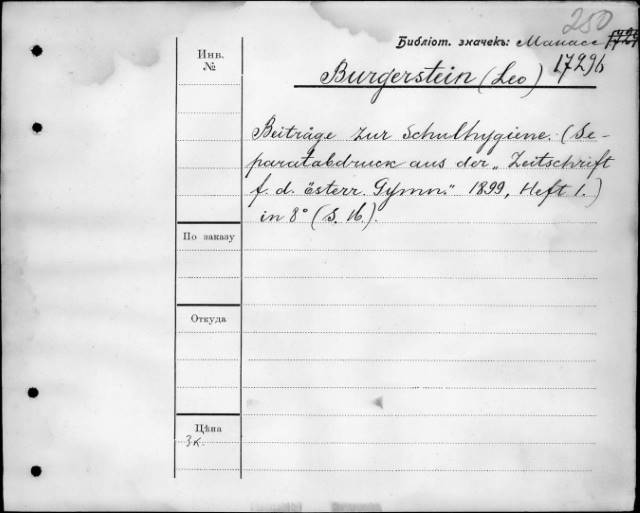 250
Библіот. значекъ: Манасс 1729
17296
Инв.
№
Burgerstein (Leo)
Beiträge zur Schulhygiene. (Se-
paratabdruck aus der „Zeitschrift
f. d. österr. Gymn." 1899, Heft 1.)
in 8° (S. 16.).
По заказу
Откуда
Цѣна
3к.